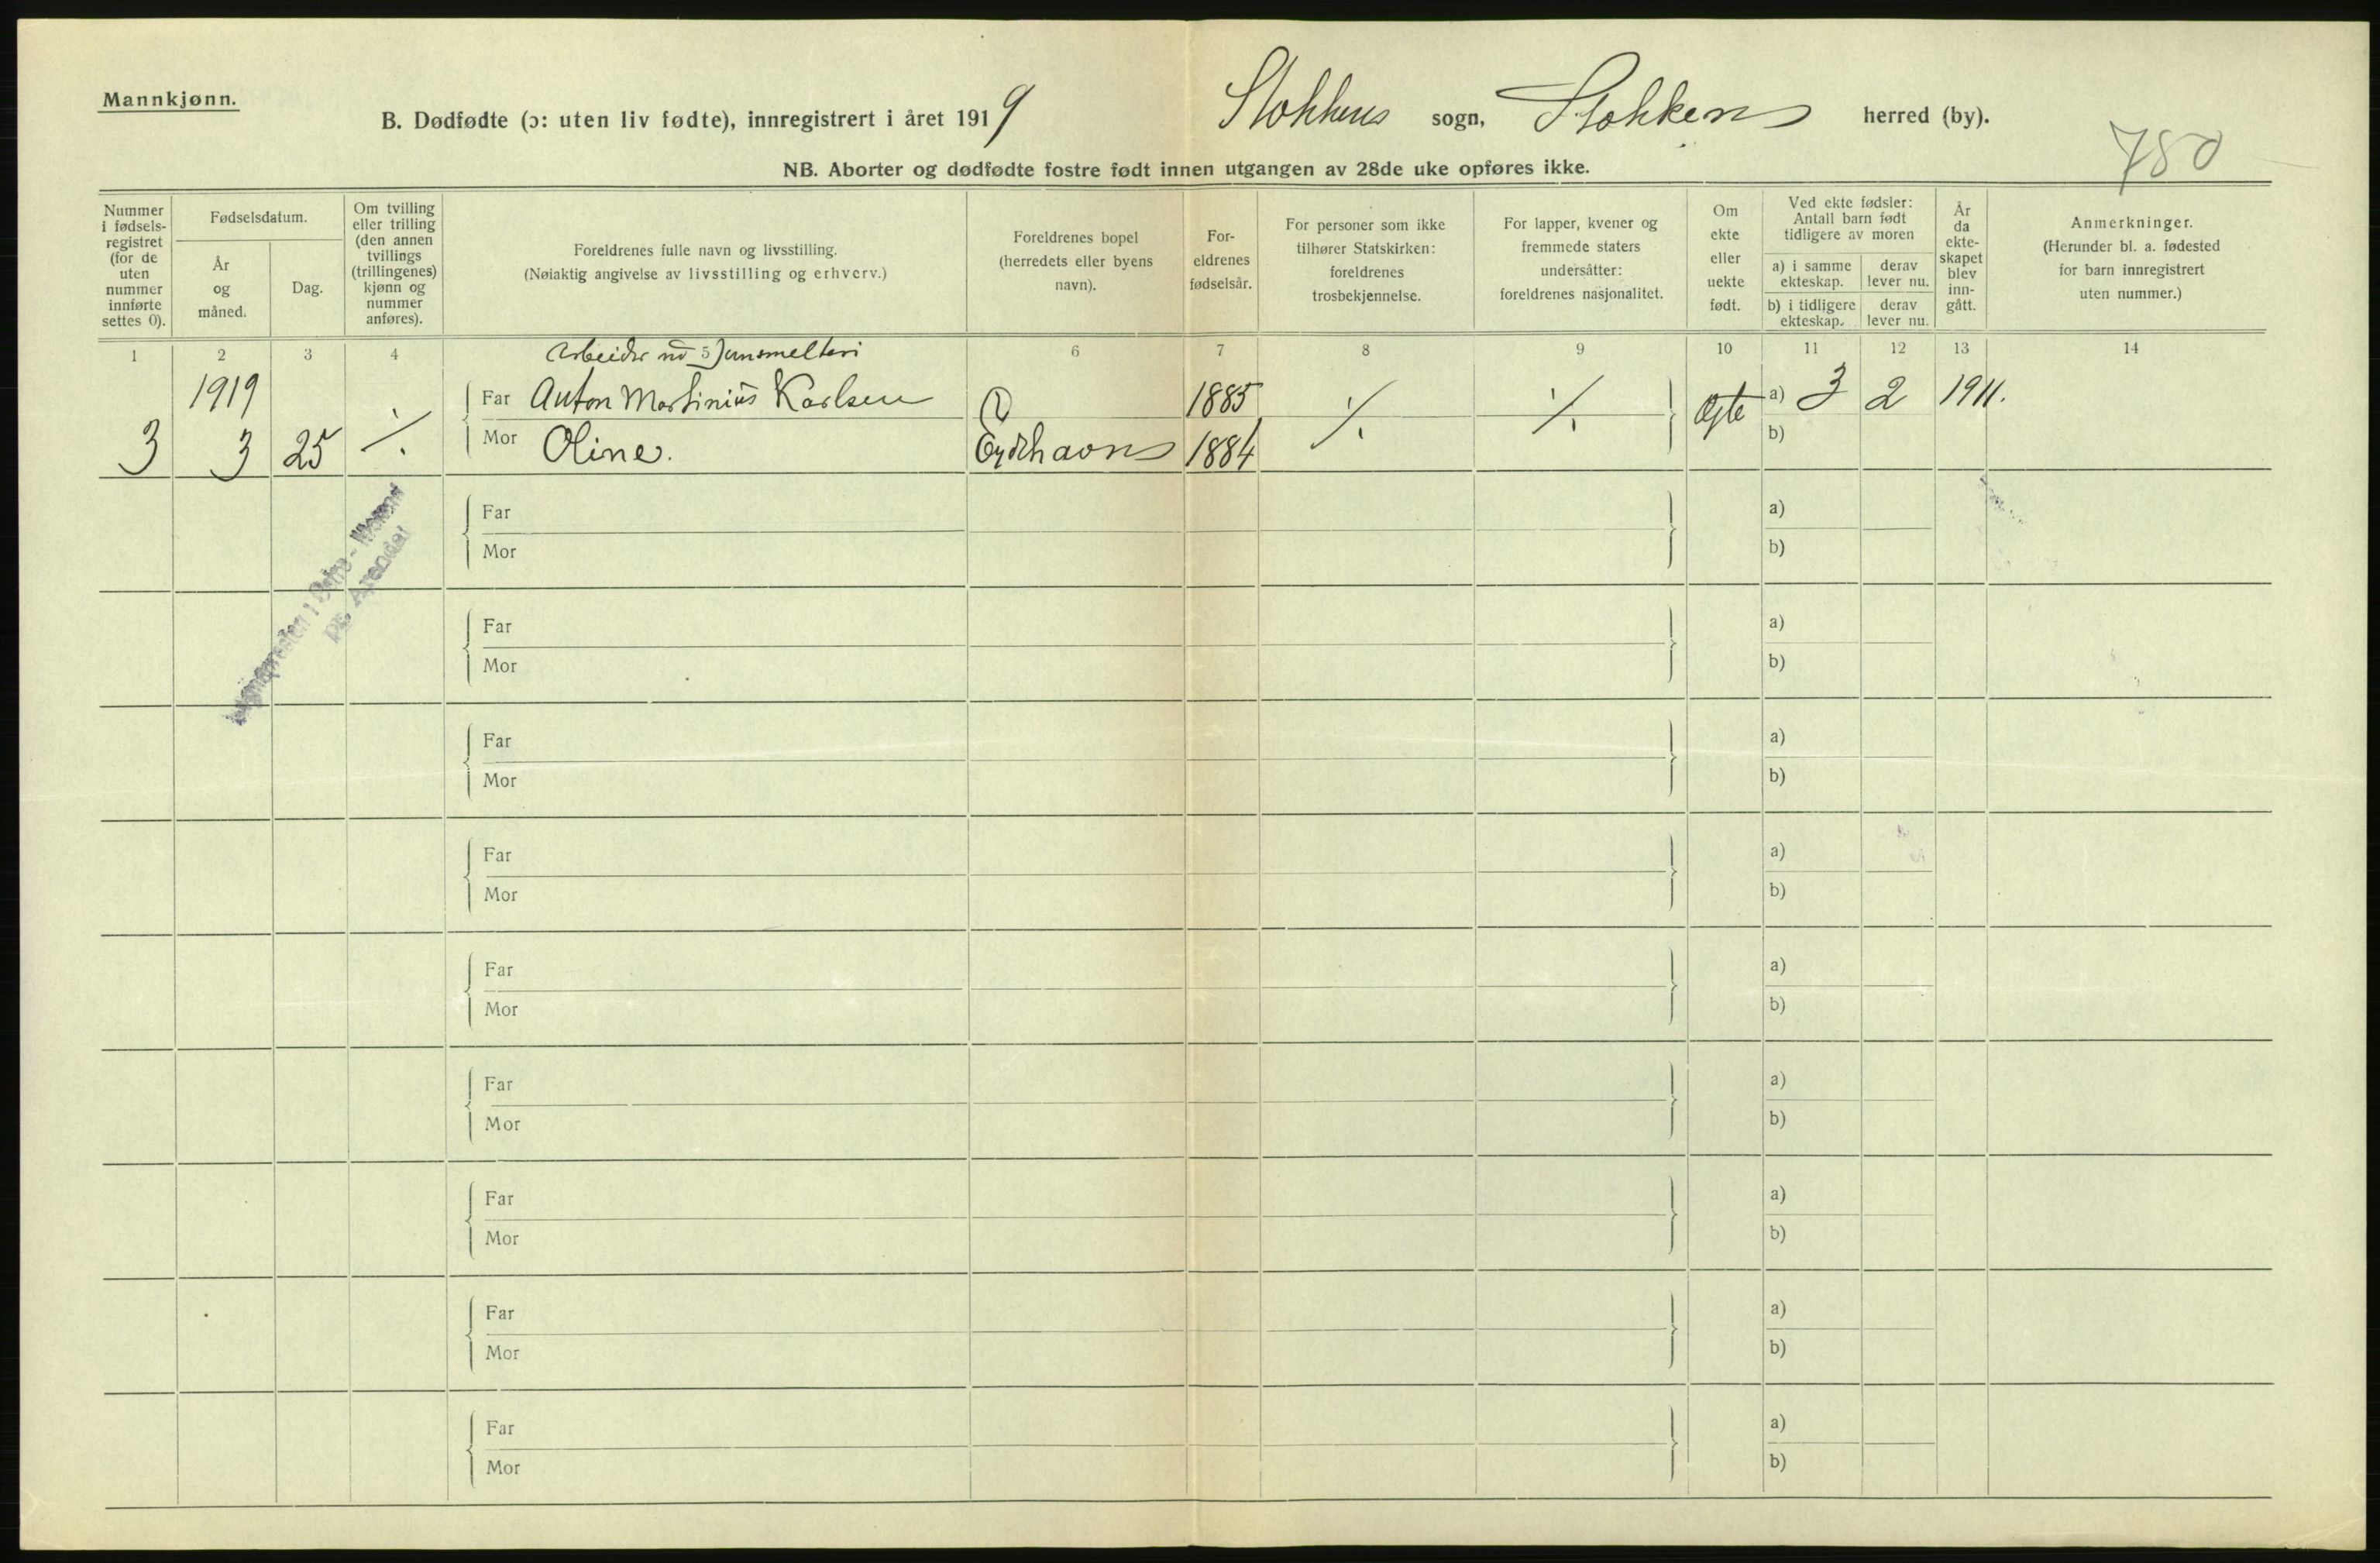 Mannkjønn.
B. Dødfødte (ɔ: uten liv fødte), innregistrert i året 1919 Stokkens sogn, Stokkens herred (by).
780
NB. Aborter og dødfødte fostre født innen utgangen av 28de uke opføres ikke.
Nummer i fødsels-registret (for de uten nummer innførte settes 0).
Fødselsdatum.
År og måned.
Dag.
Om tvilling eller trilling (den annen tvillings (trillingenes) kjønn og nummer anføres).
Foreldrenes fulle navn og livsstilling.
(Nøiaktig angivelse av livsstilling og erhverv.)
Foreldrenes bopel (herredets eller byens navn).
For-eldrenes fødselsår.
For personer som ikke tilhører Statskirken: foreldrenes trosbekjennelse.
For lapper, kvener og fremmede staters undersåtter: foreldrenes nasjonalitet.
Om ekte eller uekte født.
Ved ekte fødsler: Antall barn født tidligere av moren
a) i samme ekteskap. derav lever nu.
b) i tidligere ekteskap. derav lever nu.
År da ekte-skapet blev inn-gått.
Anmerkninger.
(Herunder bl. a. fødested for barn innregistrert uten nummer.)
1 2 3 4 5 6 7 8 9 10 11 12 13 14
Arbeider Jernsmelteri
1919 Far Anton Martinius Karlsen 1885 Egte a) 3 2 1911.
3 3 25 ./. Mor Oline. Eydehavn 1884 ./. ./. b)
Far a)
Mor b)
Far a)
Mor b)
Far a)
Mor b)
Far a)
Mor b)
Far a)
Mor b)
Far a)
Mor b)
Far a)
Mor b)
Far a)
Mor b)
Far a)
Mor b)
pr. Arendal